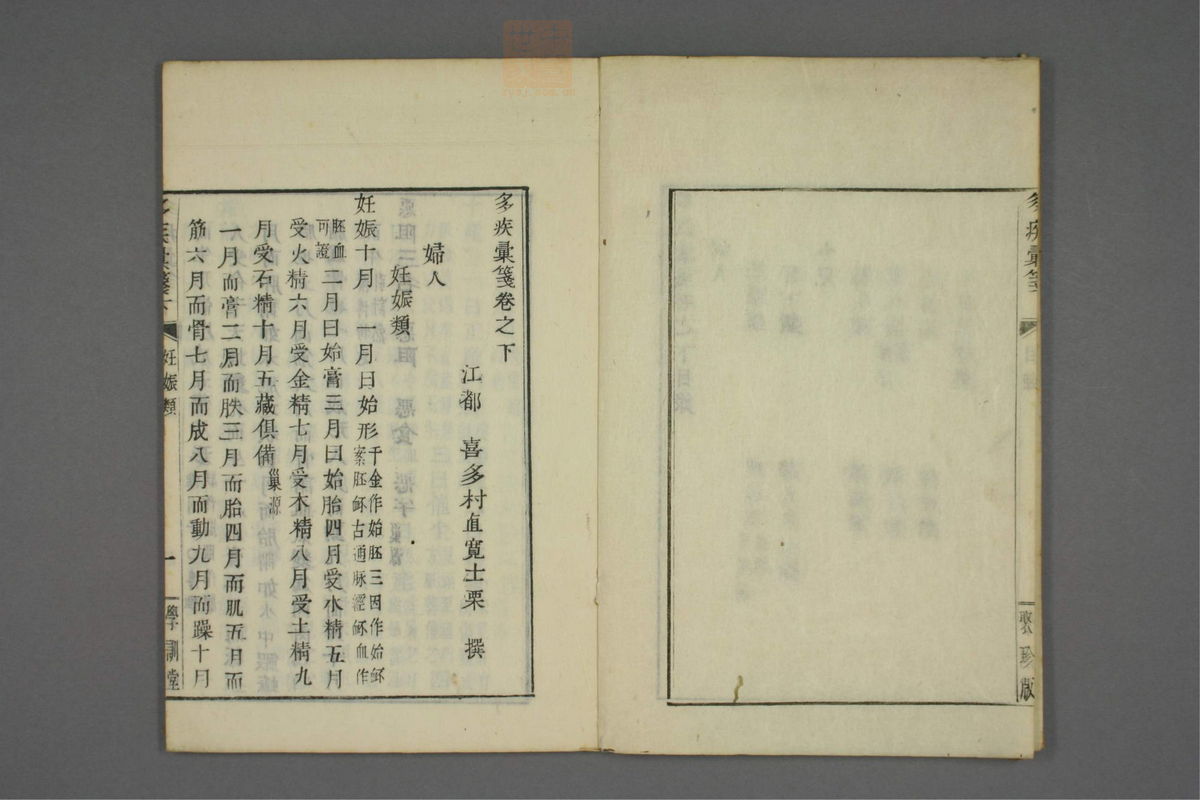 多疾彙箋
聚珍版
多疾彙箋卷之下
江都　喜多村直寬士栗　撰
婦人
妊娠類
妊娠十月　一月曰始形千金作始胚三因作始䏽
案胚䏽古通脉經䏽血作
胚血
可證二月曰始膏三月曰始胎四月受水精五月
受火精六月受金精七月受木精八月受土精九
月受石精十月五藏俱備巢源
一月而膏二月而胅三月而胎四月而肌五月而
筋六月而骨七月而成八月而動九月而躁十月
多疾彙箋下
妊娠類
一
學訓堂